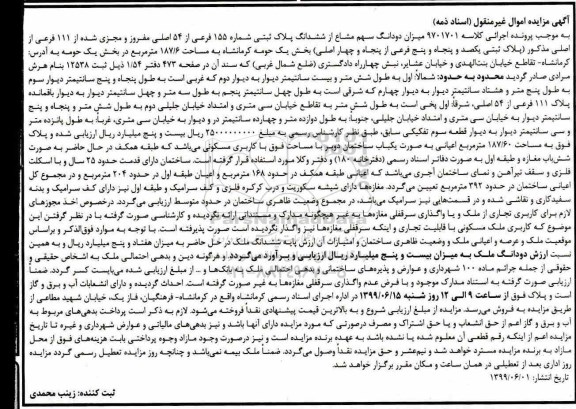 آگهی مزایده اموال غیرمنقول (اسناد ذمه)
به موجب پرونده اجرائی کلاسه ۹۷۰۱۷۰۱ میزان دودانگ سهم مشاع از ششدانگ پلاک ثبتی شماره ۱۵۵ فرعی از ۵۴ اصلی مفروز و مجزی شده از ۱۱۱ فرعی از
اصلی مذکور (پلاک ثبتی یکصد و پنجاه و پنج فرعی از پنجاه و چهار اصلی) بخش یک حومه کرمانشاه به مساحت ۱۸۷/۶ مترمربع در بخش یک حومه به آدرس:
کرمانشاه- تقاطع خیابان بنت‌الهدی و خیابان عشایر، نبش چهارراه دادگستری (ضلع شمال غربی) که سند آن در صفحه ۴۷۳ دفتر ۱/۵۴ ذیل ثبت ۱۲۵۳۸ بنام هرش
مرادی صادر گردید محدود به حدود: شمالاً: اول به طول شش متر و بیست سانتیمتر دیوار به دیوار دوم که غربی است به طول پنجاه و پنج سانتیمتر دیوار سوم
به طول پنج متر و هشتاد سانتیمتر دیوار به دیوار چهارم که شرقی است به طول چهل سانتیمتر پنجم به طول سه متر و چهل سانتیمتر دیوار به دیوار باقیمانده
پلاک ۱۱۱ فرعی از ۵۴ اصلی، شرقاً: اول پخی است به طول شش متر به تقاطع خیابان سی متری و امتداد خیابان جلیلی دوم به طول شش متر و پنجاه و پنج
سانتیمتر دیوار به خیابان سی متری و امتداد خیابان جلیلی، جنوباً: به طول دوازده متر و چهارده سانتیمتر در و دیوار به خیابان سی متری، غرباً: به طول پانزده متر
و سی سانتیمتر دیوار به دیوار قطعه سوم تفکیکی سابق، طبق نظر کارشناس رسمی به مبلغ ۲۵۰۰۰۰۰۰۰۰۰ ریال بیست و پنج میلیارد ریال ارزیابی شده و پلاک
فوق به مساحت ۱۸۷/۶۰ مترمربع اعیانی به صورت یکباب ساختمان دوبر با مساحت فوق با کاربری مسکونی می‌باشد که طبقه همکف در حال حاضر به صورت
شش‌باب مغازه و طبقه اول به صورت دفاتر اسناد رسمی (دفترخانه ۱۸۰) و دفتر وکلا مورد استفاده قرار گرفته است. ساختمان دارای قدمت حدود ۲۵ سال و با اسکلت
فلزی و سقف تیرآهن و نمای ساختمان آجری می‌باشد که اعیانی طبقه همکف در حدود ۱۶۸ مترمربع و اعیان طبقه اول در حدود ۲۰۴ مترمربع و در مجموع کل
اعیانی ساختمان در حدود ۳۹۲ مترمربع تعیین می‌گردد. مغازه‌ها دارای شیشه سکوریت و درب کرکره فلزی و کف سرامیک و طبقه اول نیز دارای کف سرامیک و بدنه
سفیدکاری و نقاشی شده و در قسمت‌هایی نیز سرامیک می‌باشد، در مجموع وضعیت ظاهری ساختمان در حدود متوسط ارزیابی می‌گردد. درخصوص اخذ مجوزهای
لازم برای کاربری تجاری از ملک و یا واگذاری سرقفلی مغازه‌ها به غیر هیچگونه مدارک و مستنداتی ارائه نگردیده و کارشناسی صورت گرفته با در نظر گرفتن این
موضوع که کاربری ملک مسکونی با قابلیت تجاری و اینکه سرقفلی مغازه‌ها نیز واگذار نگردیده است صورت پذیرفته است. با توجه به موارد فوق‌الذکر و براساس
موقعیت ملک و عرصه و اعیانی ملک و وضعیت ظاهری ساختمان و امتیازات آن ارزش پایه ششدانگ ملک در حال حاضر به میزان هفتاد و پنج میلیارد ریال و به همین
نسبت ارزش دودانگ ملک به میزان بیست و پنج میلیارد ریال ارزیابی و برآورد می‌گردد و هرگونه دین و بدهی احتمالی ملک به اشخاص حقیقی و
حقوقی از جمله جرائم ماده ۱۰۰ شهرداری و عوارض و پذیره‌های ساختمانی و رهن احتمالی ملک به بانک‌ها و ... از مبلغ ارزیابی شده می‌بایست کسر گردد. ضمناً
ارزیابی صورت گرفته به استناد مدارک موجود و با فرض عدم واگذاری سرقفلی مغازه‌ها به غیر صورت گرفته است. احداث گردیده و دارای انشعابات آب و برق و گاز
است و پلاک فوق از ساعت ۹ الی ۱۲ روز شنبه ۱۳۹۹/۰۶/۱۵ در اداره اجرای اسناد رسمی کرمانشاه واقع در کرمانشاه- فرهنگیان، فاز یک، خیابان شهید مطاعی از
طریق مزایده به فروش می‌رسد. مزایده از مبلغ ارزیابی شروع و به بالاترین قیمت پیشنهادی نقداً فروخته می‌شود. لازم به ذکر است پرداخت بدهی‌های مربوط به
آب و برق و گاز اعم از حق انشعاب و یا حق اشتراک و مصرف درصورتی که مورد مزایده دارای آنها باشد و نیز بدهی‌های مالیاتی و عوارض شهرداری و غیره تا تاریخ
مزایده اعم از اینکه رقم قطعی آن معلوم شده یا نشده باشد به عهده برنده مزایده است و نیز درصورت وجود مازاد وجوه پرداختی بابت هزینه‌های فوق از محل
مازاد به برنده مزایده مسترد خواهد شد و نیم‌عشر و حق مزایده نقداً وصول می‌گردد. ضمناً ملک بیمه نمی‌باشد و چنانچه روز مزایده تعطیل رسمی گردد مزایده
روز اداری بعد از تعطیلی در همان ساعت و مکان مقرر برگزار خواهد شد.
تاریخ انتشار: ۱۳۹۹/۰۶/۰۱
ثبت کننده: زینب محمدی